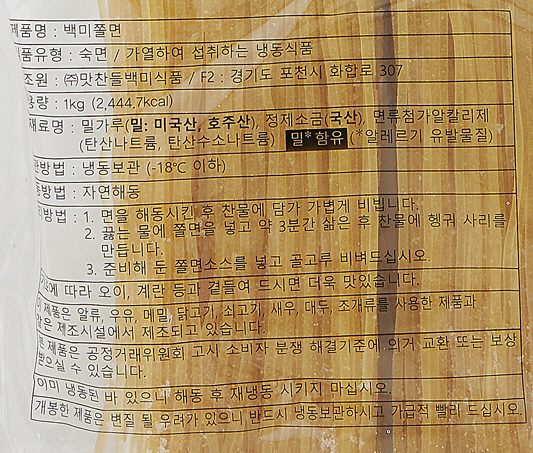 제품명 : 백미쫄면
품유형 : 숙면 / 가열하여 섭취하는 냉동식품
조원 : ㈜맛찬들백미식품 / F2 : 경기도 포천시 화합로 307
용량 : 1kg (2,444.7kcal)
재료명 : 밀가루(밀: 미국산, 호주산), 정제소금(국산), 면류첨가알칼리제
(탄산나트륨, 탄산수소나트륨) 밀* 함유 (*알레르기 유발물질)
관방법 : 냉동보관 (-18℃ 이하)
동방법 : 자연해동
리방법 : 1. 면을 해동시킨 후 찬물에 담가 가볍게 비빕니다.
2. 끓는 물에 쫄면을 넣고 약 3분간 삶은 후 찬물에 헹궈 사리를
만듭니다.
3. 준비해 둔 쫄면소스를 넣고 골고루 비벼드십시오.
에 따라 오이, 계란 등과 곁들여 드시면 더욱 맛있습니다.
이 제품은 알류, 우유, 메밀, 닭고기, 쇠고기, 새우, 대두, 조개류를 사용한 제품과
같은 제조시설에서 제조되고 있습니다.
본 제품은 공정거래위원회 고시 소비자 분쟁 해결기준에 의거 교환 또는 보상
받으실 수 있습니다.
이미 냉동된 바 있으니 해동 후 재냉동 시키지 마십시오.
개봉한 제품은 변질 될 우려가 있으니 반드시 냉동보관하시고 가급적 빨리 드십시오.